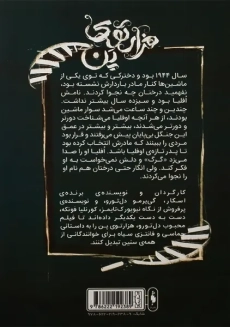 هزارتوی
پن
سال ۱۹۴۴ بود و دخترکی که توی یکی از
ماشین‌ها کنار مادر باردارش نشسته بود،
نمی‌فهمید درختان چه نجوا کردند. نامش
اُفلیا بود و سیزده سال بیشتر نداشت.
چندین و چند ساعت می‌شد سوار ماشین
بودند، از هر آنچه اوفلیا می‌شناخت دورتر
و دورتر می‌شدند، بیشتر و بیشتر در عمق
این جنگل بی‌پایان پیش می‌رفتند و قرار بود
مردی را ببینند که مادرش انتخاب کرده بود
تا پدر تازه‌ی اوفلیا باشد. اُفلیا او را صدا
می‌زد «گرگ» و دلش نمی‌خواست به او
فکر کند. ولی انگار حتی درختان هم نام او
را نجوا می‌کردند.
کارگردان و نویسنده‌ی برنده‌ی
اسکار، گی‌یرمو دل‌تورو، و نویسنده‌ی
پرفروش از نگاه نیویورک‌تایمز، کورنلیا فونکه،
دست به دست یکدیگر داده‌اند تا فیلم
محبوب دل‌تورو، هزارتوی پن را به داستانی
حماسی و فانتزی سیاه برای خوانندگانی از
همه‌ی سنین تبدیل کنند.